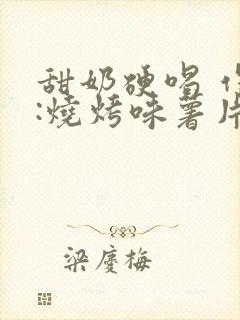 甜奶硬唱
:燒烤味薯片
梁慶梅